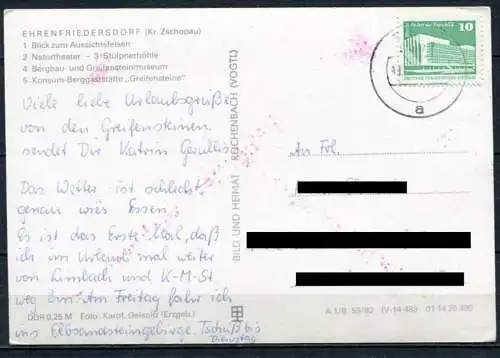 EHRENFRIEDERSDORF (Kr. Zschopau)
1 Blick zum Aussichtsfelsen
2 Naturtheater - 3 Stülpnerhöhle
4 Bergbau- und Greifensteinmuseum
5 Konsum-Berggaststätte „Greifensteine"
Viele liebe Urlaubsgrüße
von den Greifensteinen
sendet Dir Katrin
Das Wetter ist schlecht
genau wies Essen.
Es ist das Erste Mal, daß
ich im Urlaub mal weiter
von Limbach und K-M-St
weg bin. Am Freitag fahr ich
ins Elbsandsteingebirge. Tschüß bis
Dienstag
DDR 0,25 M Foto: Karof, Gelsnig (Erzgeb.)
BILD UND HEIMAT REICHENBACH (VOGTL)
10
a
An Frl.
A 1/B 59/82 IV-14-483 01 14 20 400